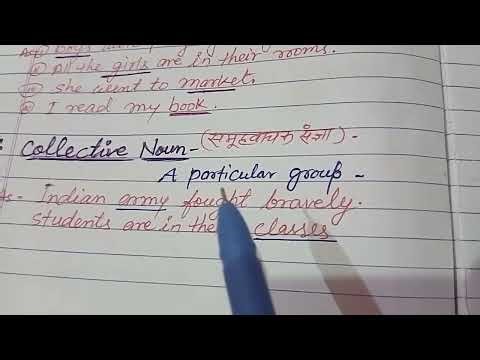 boys
(ii) All the girls are in their rooms.
(iii) She went to market.
(iv) I read my book.
Collective Noun - (समूहवाचक संज्ञा) -
A particular group -
Indian army fought bravely.
students are in the classes